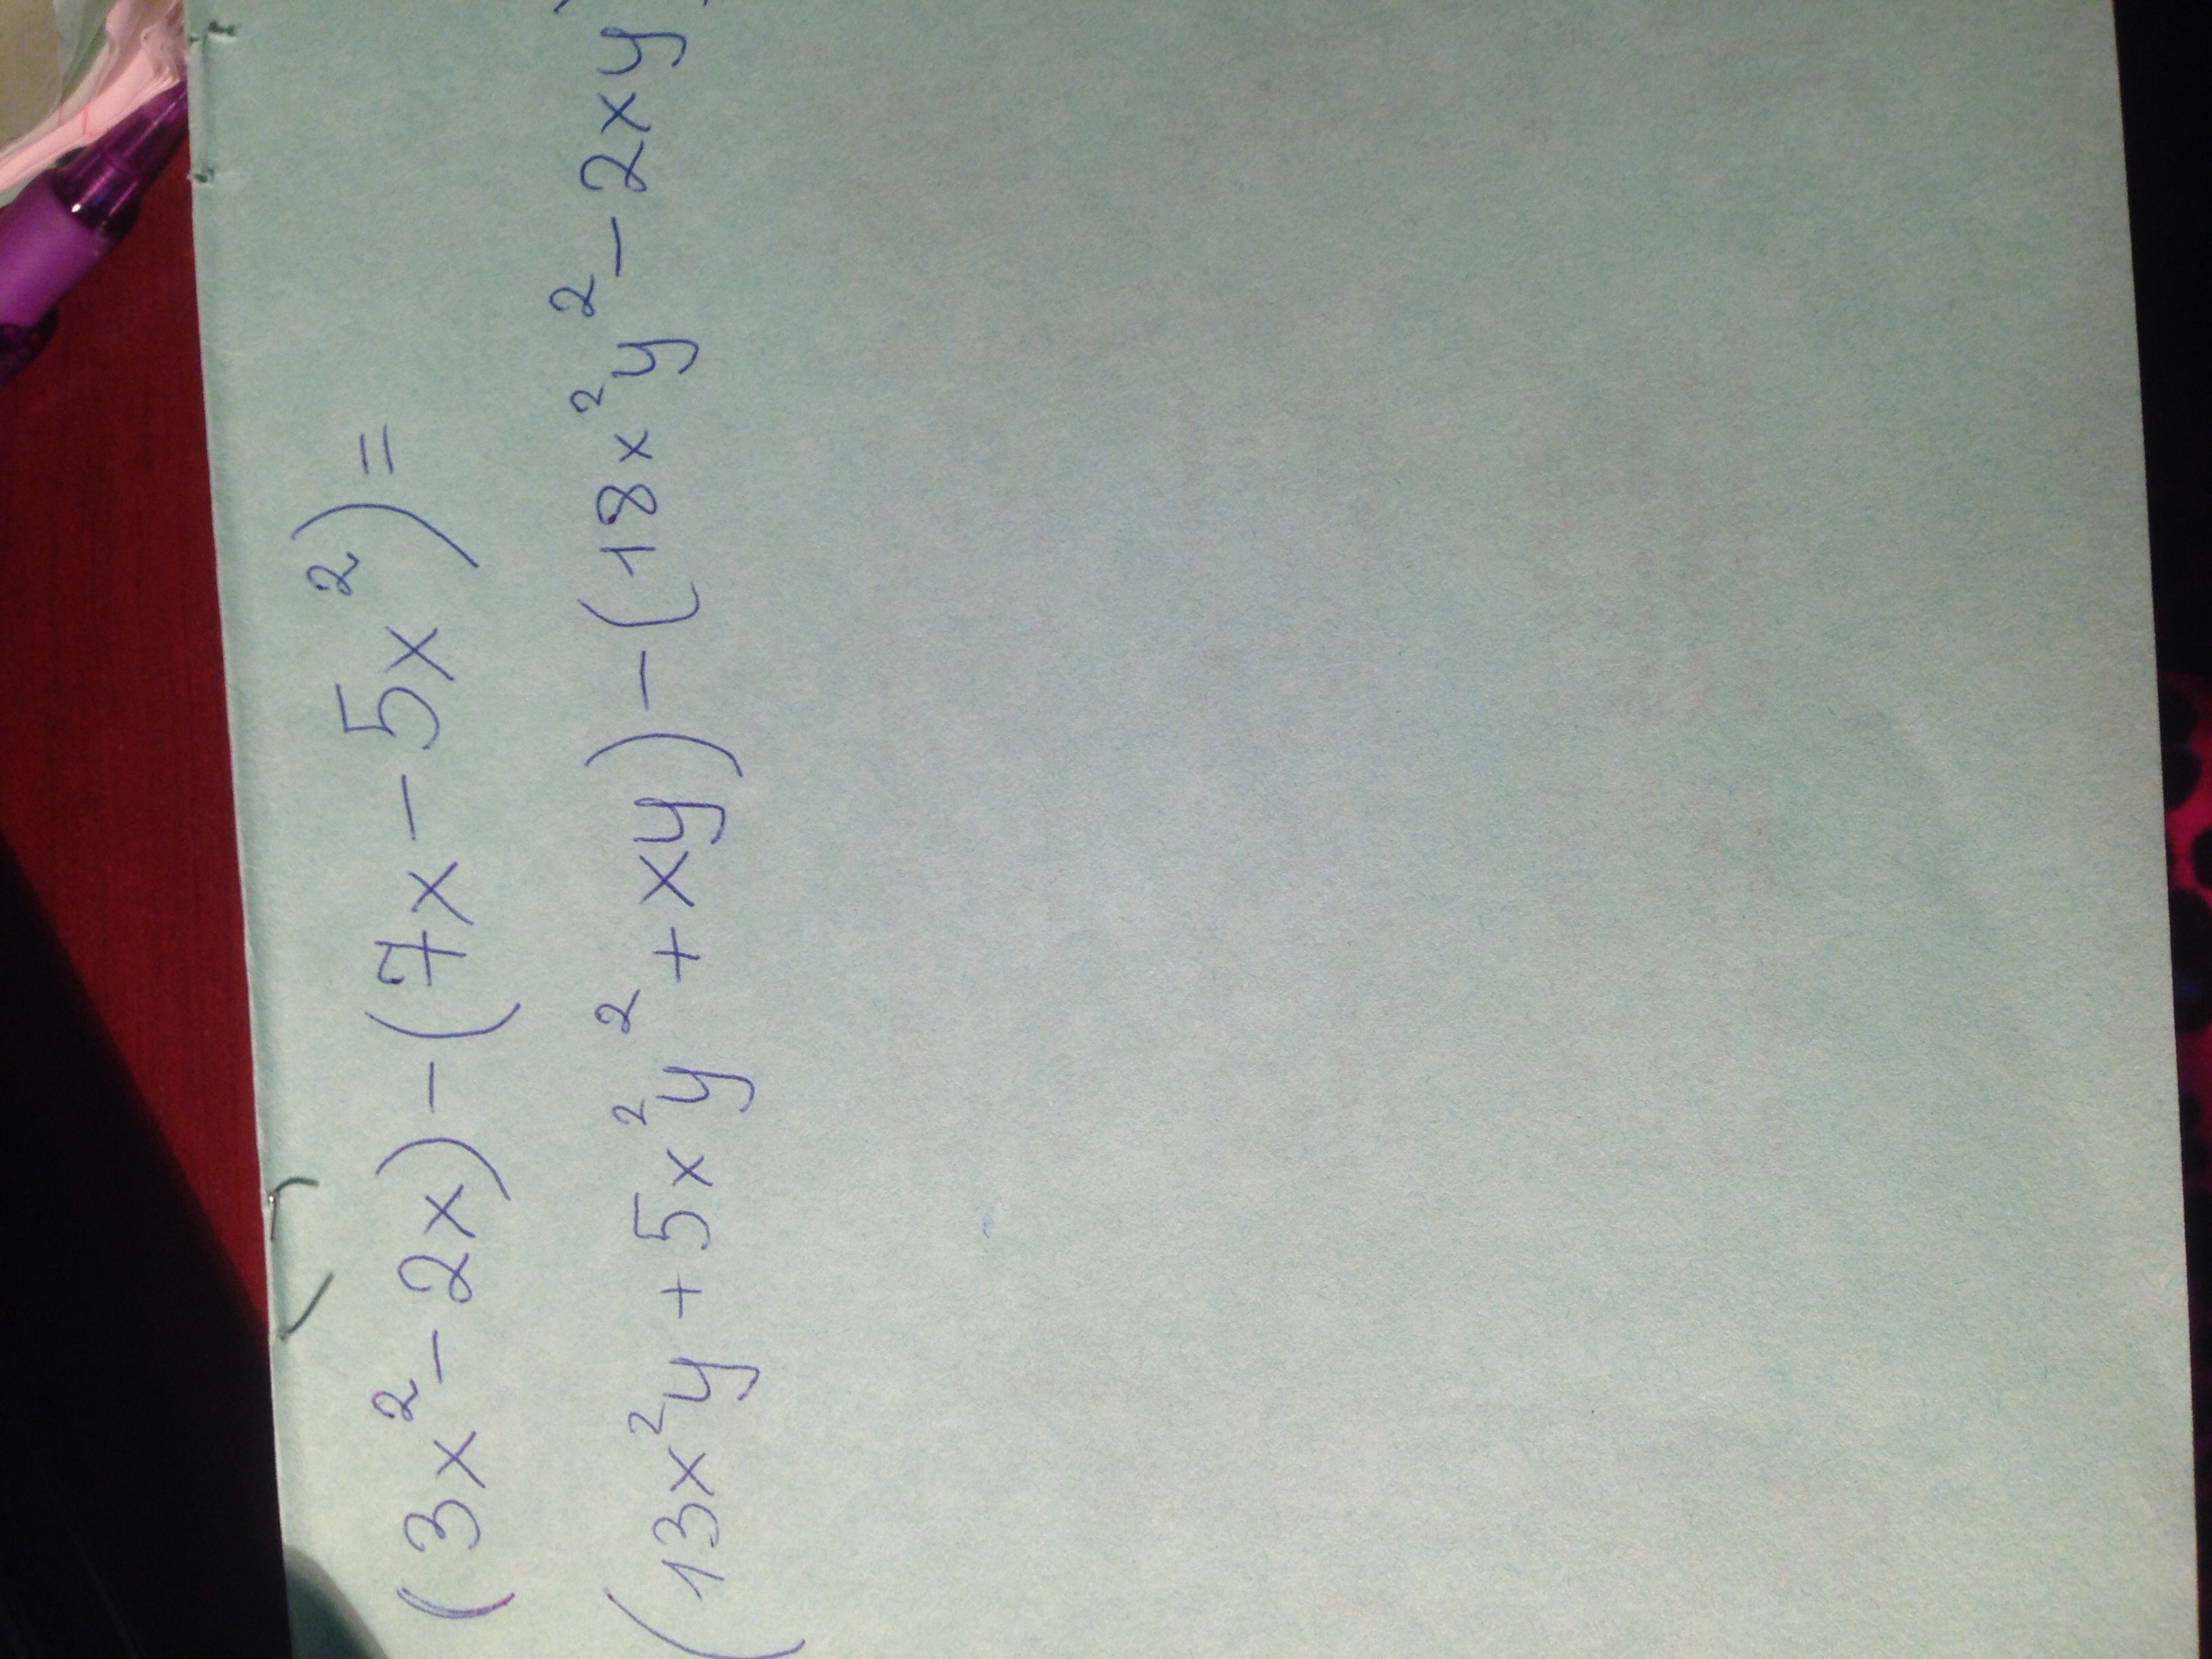 (3x²-2x)-(7x-5x²)=
(13x²y+5x²y²+xy)-(18x²y²-2xy)